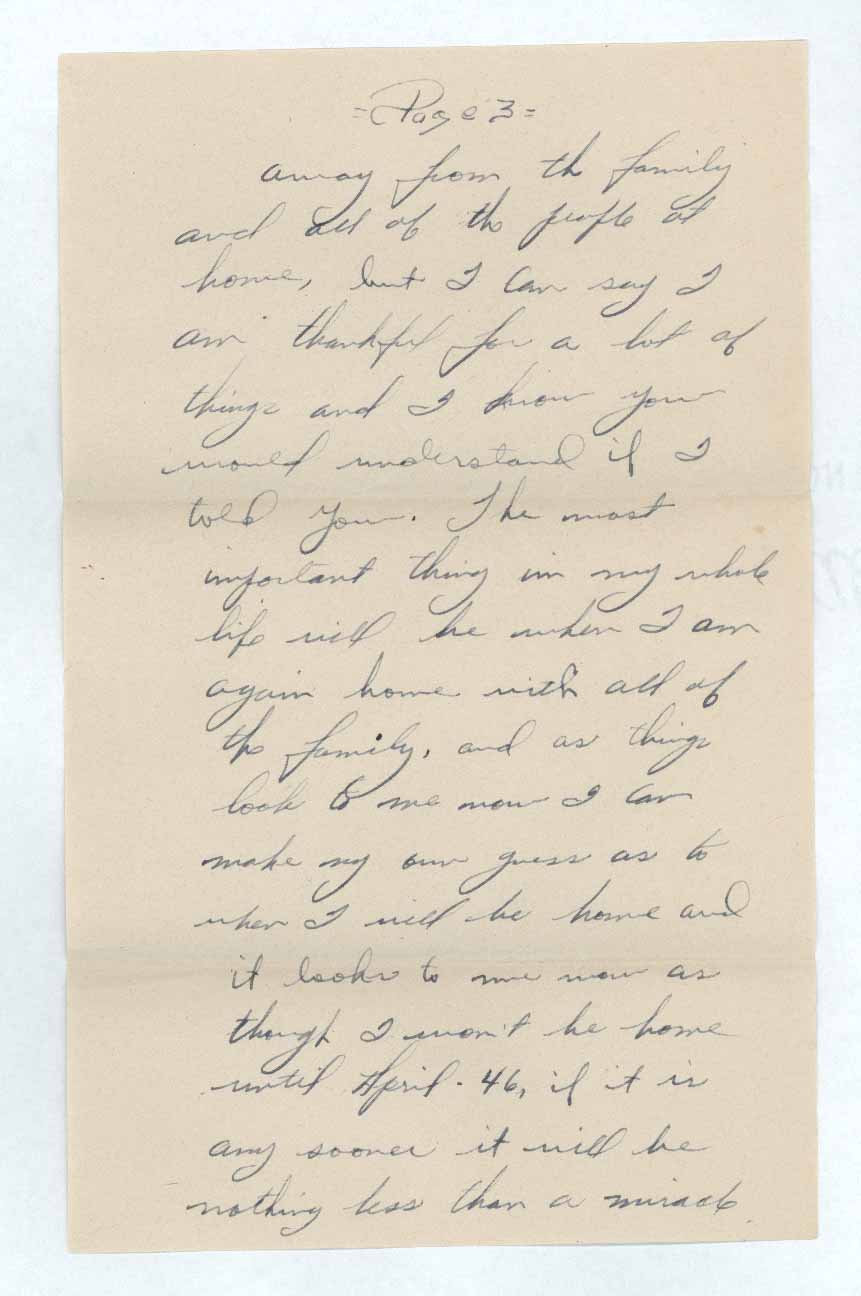 =Page 3=
away from the family
and all of the people at
home, but I can say I
am thankful for a lot of
things and I know you
would understand if I
told you. The most
important thing in my whole
life will be when I am
again home with all of
the family, and as things
look to me now I can
make my own guess as to
when I will be home and
it looks to me now as
though I won't be home
until April - 46, if it is
any sooner it will be
nothing less than a miracle